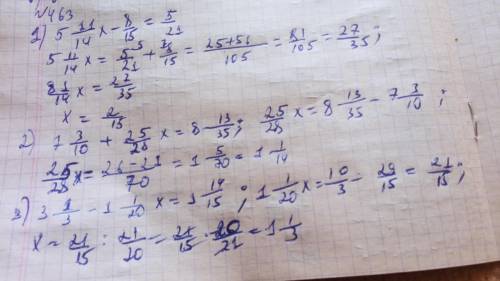 №463
1) 5 11/14 x - 8/15 = 5/21
5 11/14 x = 5/21 + 8/15 = (25+56)/105 = 81/105 = 27/35;
81/14 x = 27/35
x = 2/15
2) 7 3/10 + 25/28 x = 8 13/35; 25/28 x = 8 13/35 - 7 3/10;
25/28 x = (26-21)/70 = 1 5/70 = 1 1/14
3) 3 1/3 - 1 1/20 x = 1 14/15; 1 1/20 x = 10/3 - 29/15 = 21/15;
x = 21/15 : 21/20 = 21/15 · 20/21 = 1 1/3